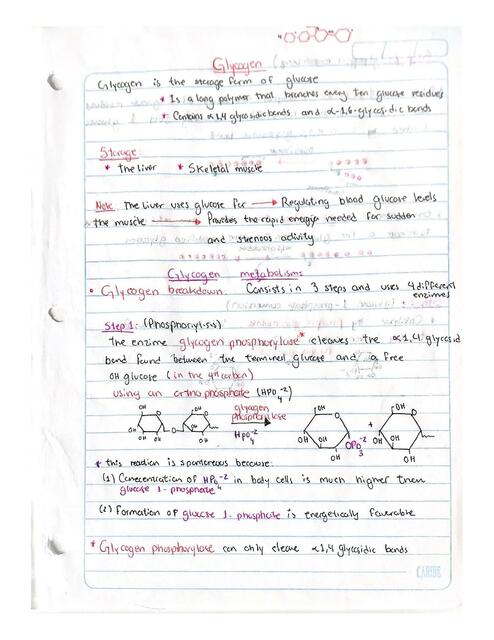 Glycogen
Glycogen is the storage form of glucose
* Is a long polymer that branches every ten glucose residues
* Contains α 1,4 glycosidic bonds and α-1,6-glycosidic bonds
Storage:
* the liver * Skeletal muscle
Note: The liver uses glucose for → Regulating blood glucose levels
the muscle → Provides the rapid energy needed for sudden
and strenous activity
Glycogen metabolism:
• Glycogen breakdown. Consists in 3 steps and uses 4 different
enzimes
Step 1: (Phosphorylisis)
The enzime glycogen phosphorylase* cleaves the α 1,4 glycosid
bond found between the terminal glucose and a free
OH glucose (in the 4th carbon)
using an orthophosphate (HPO4-2)
OH OH OH OH OH OH OH OH
glycogen
phosphorylase
HPO4-2
OPO3-2
+
* this reaction is spontoneous because:
(1) Concecntration of HPO4-2 in body cells is much higher then
glucose 1-phosphate
(2) Formation of glucose 1-phosphate is energetically favorable
* Glycogen phosphorylase can only cleave α 1,4 glycosidic bonds
CARIBE